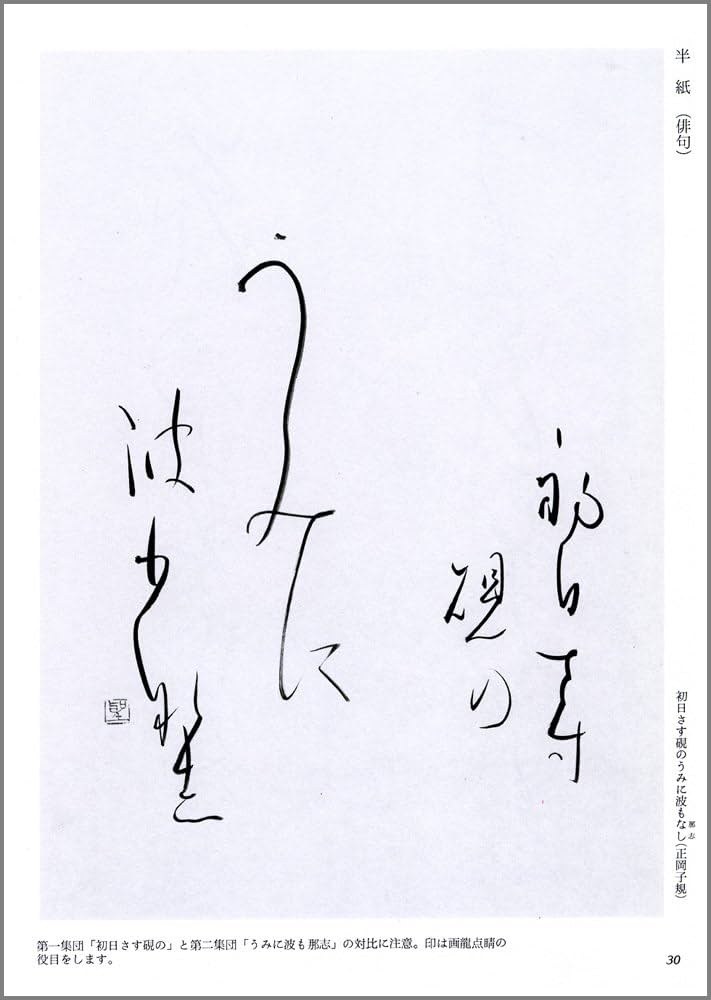 半紙(俳句)
初日さす
硯の
うみに
波も
那志
初日さす硯のうみに波もなし(正岡子規)
那志
第一集団「初日さす硯の」と第二集団「うみに波も那志」の対比に注意。印は画龍点睛の
役目をします。
30